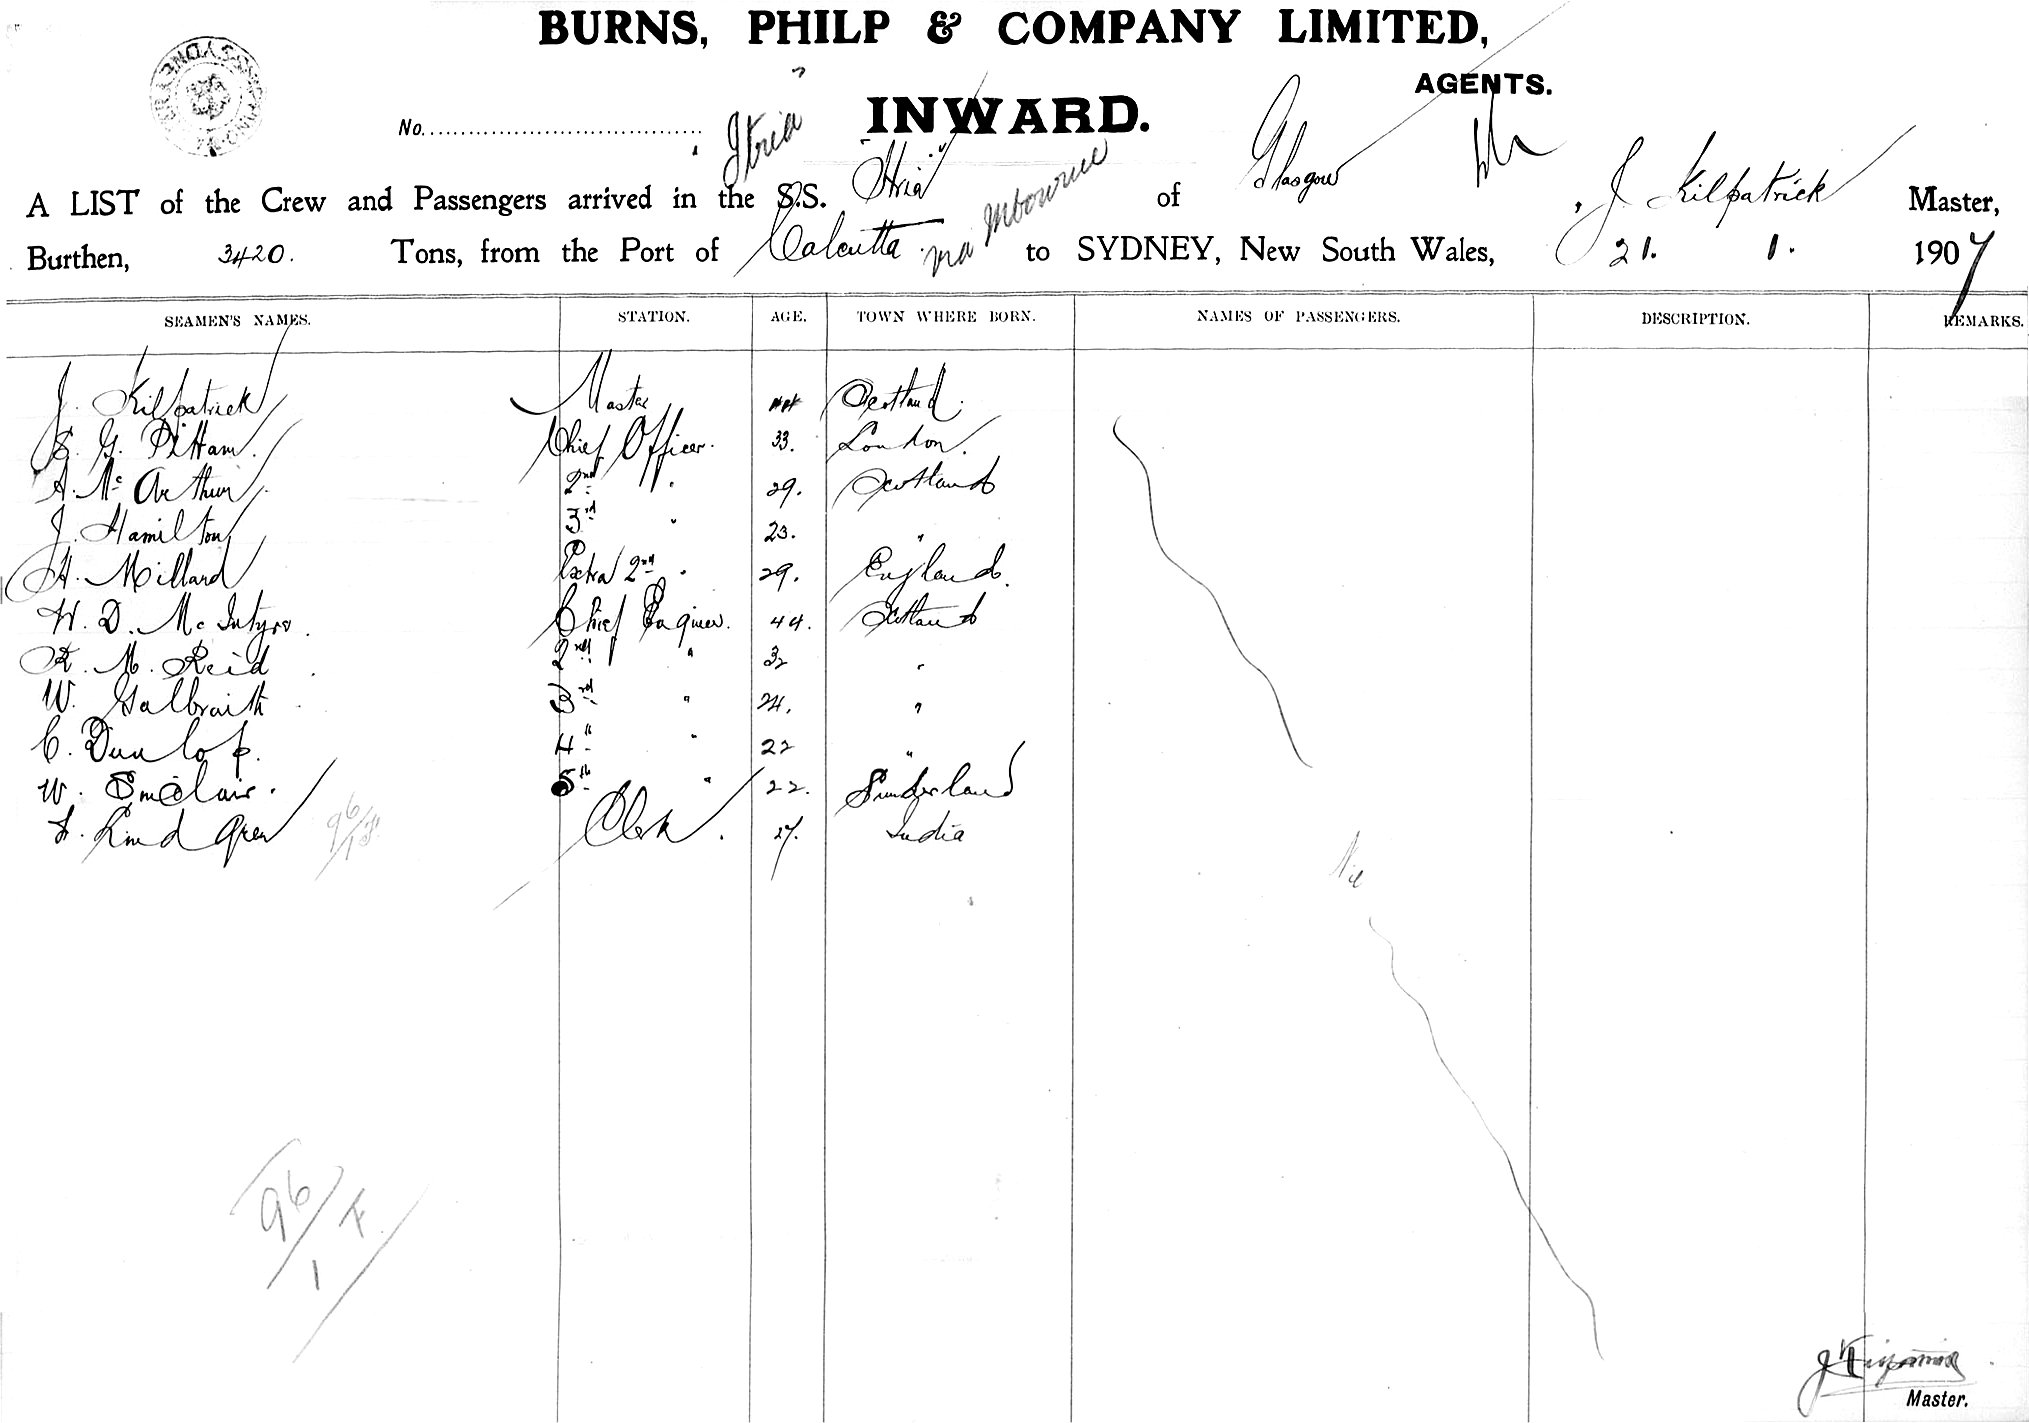 BURNS, PHILP & COMPANY LIMITED,
AGENTS.
INWARD.
No.
"Itria"
A LIST of the Crew and Passengers arrived in the S.S. "Itria" of Glasgow, J Kilpatrick Master,
Burthen, 3420. Tons, from the Port of Calcutta via Mbourne to SYDNEY, New South Wales, 21. 1. 1907
SEAMEN'S NAMES. STATION. AGE. TOWN WHERE BORN. NAMES OF PASSENGERS. DESCRIPTION. REMARKS.
J. Kilpatrick Master 44 Scotland.
S. G. Pittam. Chief Officer. 33. London.
A. Mc Arthur. 2nd " 29. Scotland
J. Hamilton 3rd " 23. "
H. Millard Extra 2nd " 29. England.
W. D. Mc Intyre. Chief Engineer. 44. Scotland
R. M. Reid. 2nd " 32 "
W. Galbraith 3rd " 24. "
C. Dunlop. 4th " 22 "
W. Sinclair. 5th " 22. Sunderland
Lind Gren Clerk. 27. India
96/1
Nil
96/1 F
J Kilpatrick
Master.